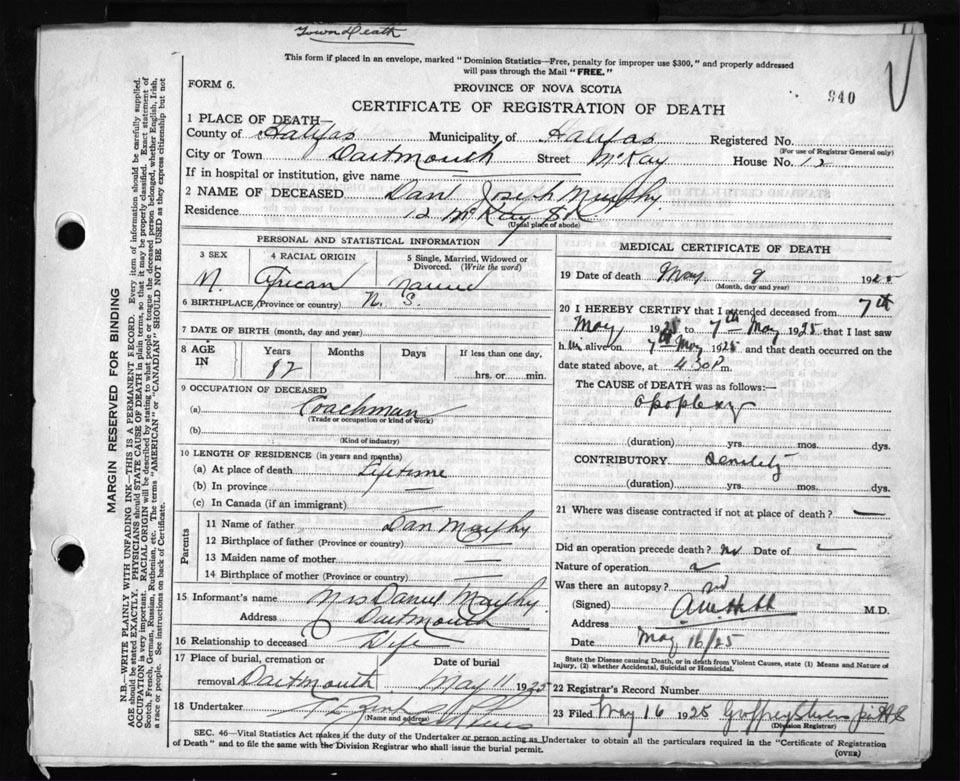 Town Death
This form if placed in an envelope, marked "Dominion Statistics—Free, penalty for improper use $300," and properly addressed
will pass through the Mail "FREE."
FORM 6.
PROVINCE OF NOVA SCOTIA
940
CERTIFICATE OF REGISTRATION OF DEATH
1 PLACE OF DEATH
County of Halifax Municipality of Halifax Registered No.
(For use of Registrar General only)
City or Town Dartmouth Street McKay House No. 12
If in hospital or institution, give name —
2 NAME OF DECEASED Dan Joseph Murphy.
Residence 12 McKay St
(Usual place of abode)
PERSONAL AND STATISTICAL INFORMATION
3 SEX 4 RACIAL ORIGIN 5 Single, Married, Widowed or
Divorced. (Write the word)
M. African
6 BIRTHPLACE (Province or country) N. S.
7 DATE OF BIRTH (month, day and year)
8 AGE IN Years Months Days If less than one day,
82 hrs. or min.
9 OCCUPATION OF DECEASED
(a) Coachman
(Trade or occupation or kind of work)
(b)
(Kind of industry)
10 LENGTH OF RESIDENCE (in years and months)
(a) At place of death Lifetime
(b) In province
(c) In Canada (if an immigrant)
Parents
11 Name of father Dan Murphy
12 Birthplace of father (Province or country) —
13 Maiden name of mother —
14 Birthplace of mother (Province or country) —
15 Informant's name Mrs Daniel Murphy.
Address Dartmouth
16 Relationship to deceased Wife
17 Place of burial, cremation or Date of burial
removal Dartmouth May 11 1925
18 Undertaker
(Name and address)
MEDICAL CERTIFICATE OF DEATH
19 Date of death May 9 1925
(Month, day and year)
20 I HEREBY CERTIFY that I attended deceased from 7th
May 1925 to 7th May 1925 that I last saw
him alive on 7th May 1925 and that death occurred on the
date stated above, at 4 30 P m.
The CAUSE of DEATH was as follows:—
apoplexy
(duration) yrs. mos. dys.
CONTRIBUTORY Senility
(duration) yrs. mos. dys.
21 Where was disease contracted if not at place of death? —
Did an operation precede death? no Date of
Nature of operation
Was there an autopsy? no
(Signed) M.D.
Address
Date May 16/25
State the Disease causing Death, or in death from Violent Causes, state (1) Means and Nature of
Injury, (2) whether Accidental, Suicidal or Homicidal.
22 Registrar's Record Number
23 Filed May 16 1925
(Division Registrar)
SEC. 46—Vital Statistics Act makes it the duty of the Undertaker or person acting as Undertaker to obtain all the particulars required in the "Certificate of Registration
of Death" and to file the same with the Division Registrar who shall issue the burial permit.
(OVER)
MARGIN RESERVED FOR BINDING
N.B.—WRITE PLAINLY WITH UNFADING INK—THIS IS A PERMANENT RECORD. Every item of information should be carefully supplied.
AGE should be stated EXACTLY. PHYSICIANS should STATE CAUSE OF DEATH in plain terms, so that it may be properly classified. Exact statement of
OCCUPATION is very important. RACIAL ORIGIN will be described by stating to what people or tongue the deceased person belonged, whether English, Irish,
Scotch, French, German, Russian, Ruthenian, etc. The terms "AMERICAN" or "CANADIAN" SHOULD NOT BE USED as they express citizenship but not
a race or people. See instructions on back of Certificate.